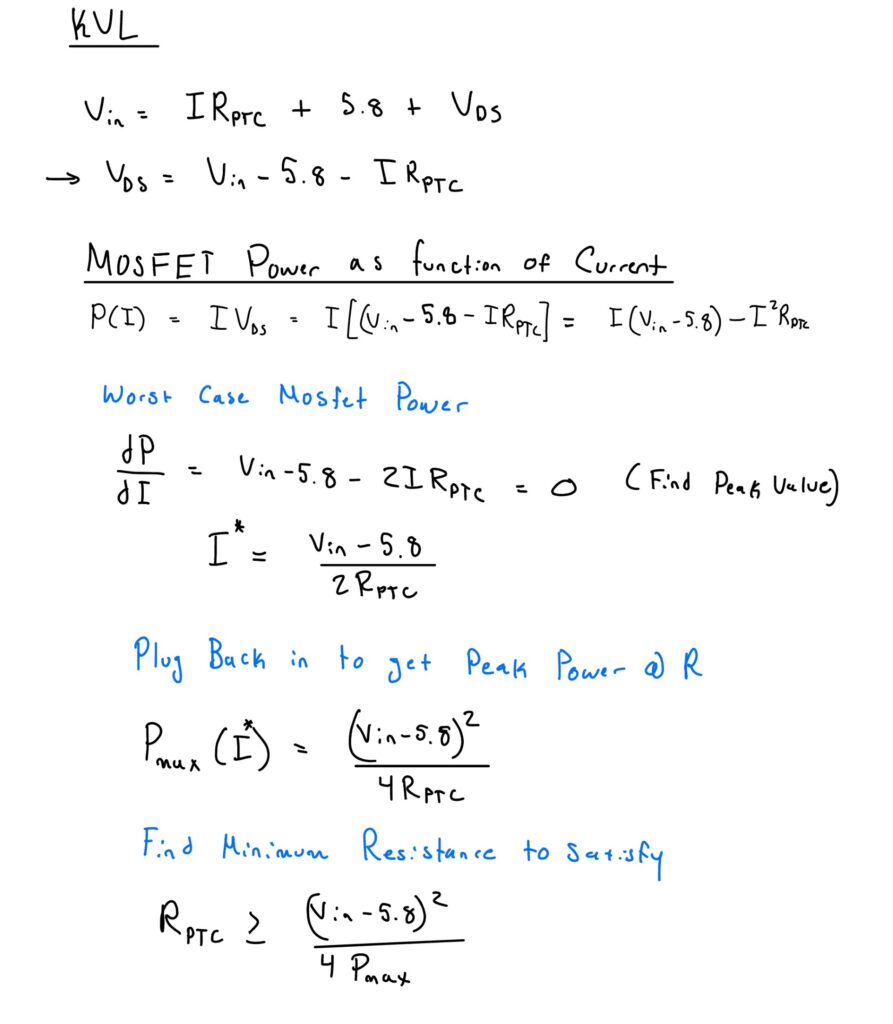 KVL
Vin = I RPTC + 5.8 + VDS
→ VDS = Vin - 5.8 - I RPTC
MOSFET Power as function of Current
P(I) = I VDS = I[(Vin - 5.8 - IRPTC] = I(Vin - 5.8) - I²RPTC
Worst Case Mosfet Power
dP/dI = Vin - 5.8 - 2IRPTC = 0 (Find Peak Value)
I* = Vin - 5.8 / 2RPTC
Plug Back in to get Peak Power @ R
Pmax(I*) = (Vin - 5.8)² / 4RPTC
Find Minimum Resistance to Satisfy
RPTC ≥ (Vin - 5.8)² / 4 Pmax